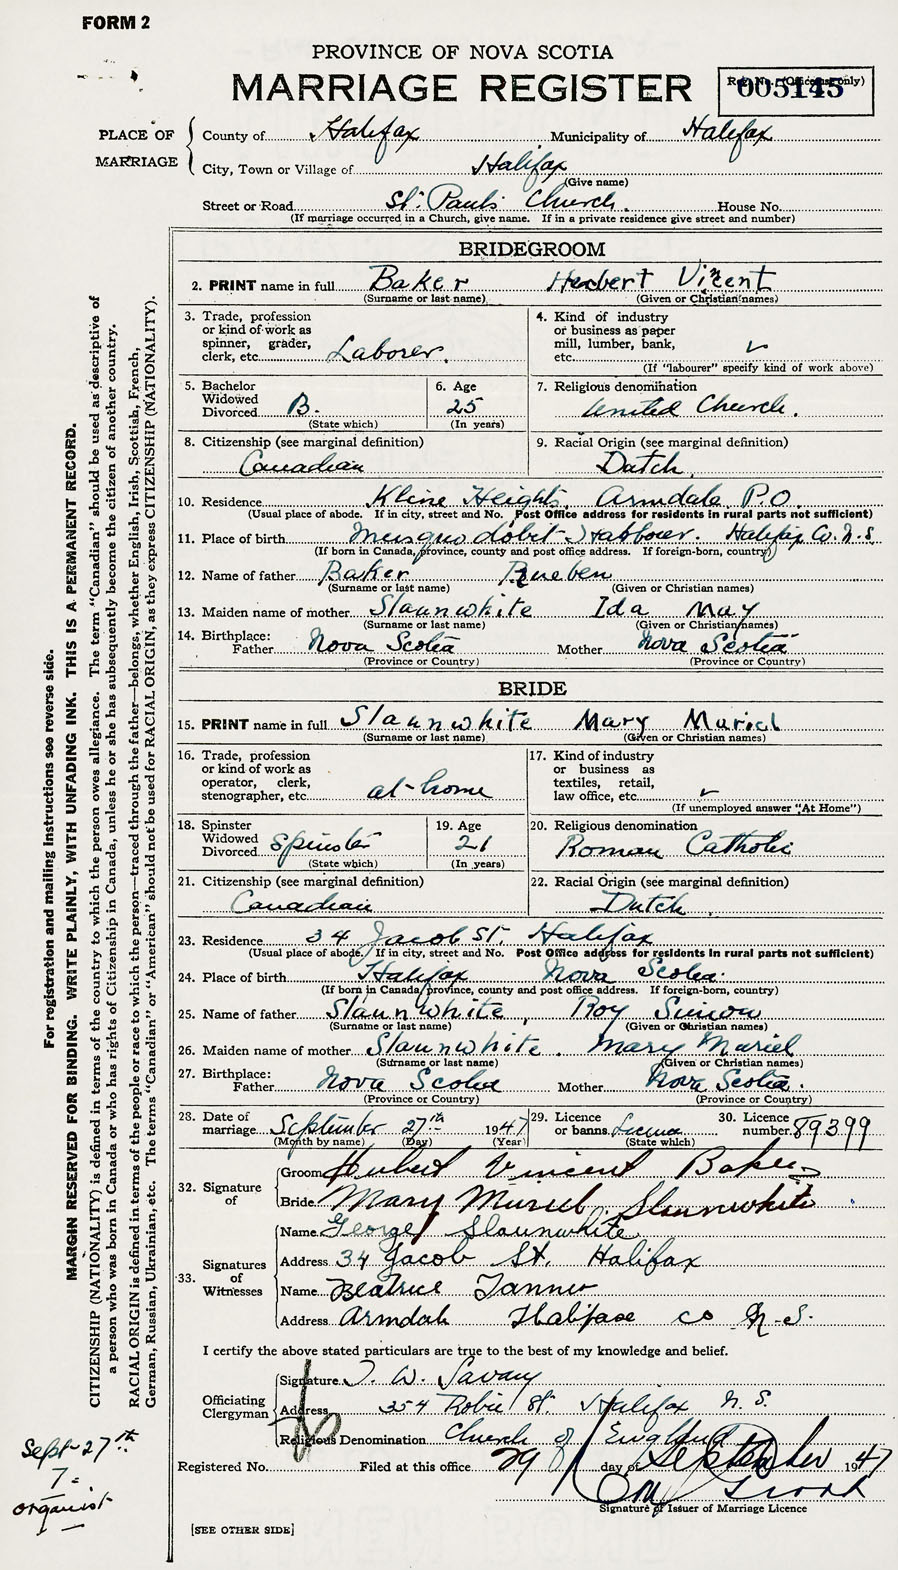 FORM 2
PROVINCE OF NOVA SCOTIA
MARRIAGE REGISTER
Reg. No. (Office use only)
005145
PLACE OF MARRIAGE
County of Halifax Municipality of Halifax
City, Town or Village of Halifax
(Give name)
Street or Road St. Pauls Church. House No.
(If marriage occurred in a Church, give name. If in a private residence give street and number)
BRIDEGROOM
2. PRINT name in full Baker Herbert Vincent
(Surname or last name) (Given or Christian names)
3. Trade, profession or kind of work as spinner, grader, clerk, etc. Laborer.
4. Kind of industry or business as paper mill, lumber, bank, etc.
(If "labourer" specify kind of work above)
5. Bachelor Widowed Divorced B.
(State which)
6. Age 25
(In years)
7. Religious denomination United Church.
8. Citizenship (see marginal definition) Canadian
9. Racial Origin (see marginal definition) Dutch
10. Residence Kline Heights, Armdale P.O.
(Usual place of abode. If in city, street and No. Post Office address for residents in rural parts not sufficient)
11. Place of birth Musquodobit Habbour. Halifax Co. N.S.
(If born in Canada, province, county and post office address. If foreign-born, country)
12. Name of father Baker Rueben
(Surname or last name) (Given or Christian names)
13. Maiden name of mother Slaunwhite Ida May
(Surname or last name) (Given or Christian names)
14. Birthplace: Father Nova Scotia Mother Nova Scotia
(Province or Country) (Province or Country)
BRIDE
15. PRINT name in full Slaunwhite Mary Muriel
(Surname or last name) (Given or Christian names)
16. Trade, profession or kind of work as operator, clerk, stenographer, etc. at-home
17. Kind of industry or business as textiles, retail, law office, etc.
(If unemployed answer "At Home")
18. Spinster Widowed Divorced Spinster
(State which)
19. Age 21
(In years)
20. Religious denomination Roman Catholic
21. Citizenship (see marginal definition) Canadian
22. Racial Origin (see marginal definition) Dutch
23. Residence 34 Jacob St. Halifax
(Usual place of abode. If in city, street and No. Post Office address for residents in rural parts not sufficient)
24. Place of birth Halifax Nova Scotia
(If born in Canada province, county and post office address. If foreign-born, country)
25. Name of father Slaunwhite, Roy Simon
(Surname or last name) (Given or Christian names)
26. Maiden name of mother Slaunwhite. Mary Muriel
(Surname or last name) (Given or Christian names)
27. Birthplace: Father Nova Scotia Mother Nova Scotia.
(Province or Country) (Province or Country)
28. Date of marriage September 27th 1947
(Month by name) (Day) (Year)
29. Licence or banns License
(State which)
30. Licence number 89399
32. Signature of
Groom Hubert Vincent Baker
Bride Mary Muriel Slaunwhite
33. Signatures of Witnesses
Name George Slaunwhite
Address 34 Jacob St. Halifax
Name Beatrice Tanner
Address Armdale Halifax Co N.S.
I certify the above stated particulars are true to the best of my knowledge and belief.
Officiating Clergyman
Signature T. W. Savary
Address 354 Robie St. Halifax N.S.
Religious Denomination Church of England
Registered No. Filed at this office 29 day of September 1947
Signature of Issuer of Marriage Licence
[SEE OTHER SIDE]
For registration and mailing instructions see reverse side.
MARGIN RESERVED FOR BINDING. WRITE PLAINLY, WITH UNFADING INK. THIS IS A PERMANENT RECORD.
CITIZENSHIP (NATIONALITY) is defined in terms of the country to which the person owes allegiance. The term "Canadian" should be used as descriptive of
a person who was born in Canada or who has rights of Citizenship in Canada, unless he or she has subsequently become the citizen of another country.
RACIAL ORIGIN is defined in terms of the people or race to which the person—traced through the father—belongs, whether English, Irish, Scottish, French,
German, Russian, Ukrainian, etc. The terms "Canadian" or "American" should not be used for RACIAL ORIGIN, as they express CITIZENSHIP (NATIONALITY).
Sept-27th
7=
organist